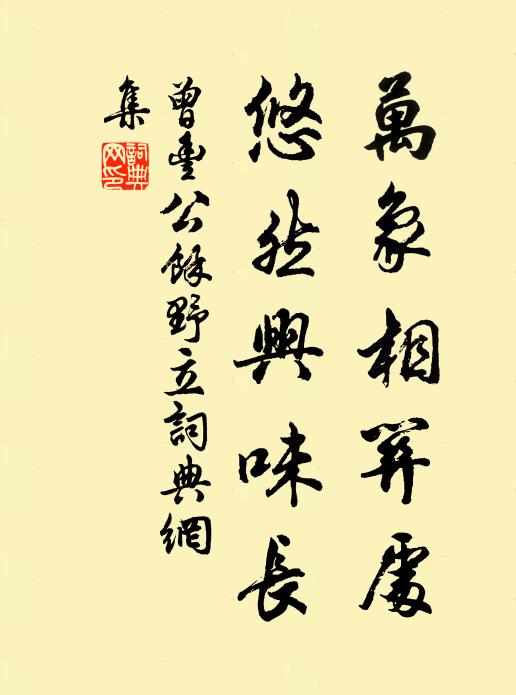 萬象相關處
悠然興味長
曾豐公餘野立詞典網
集
詞典網印